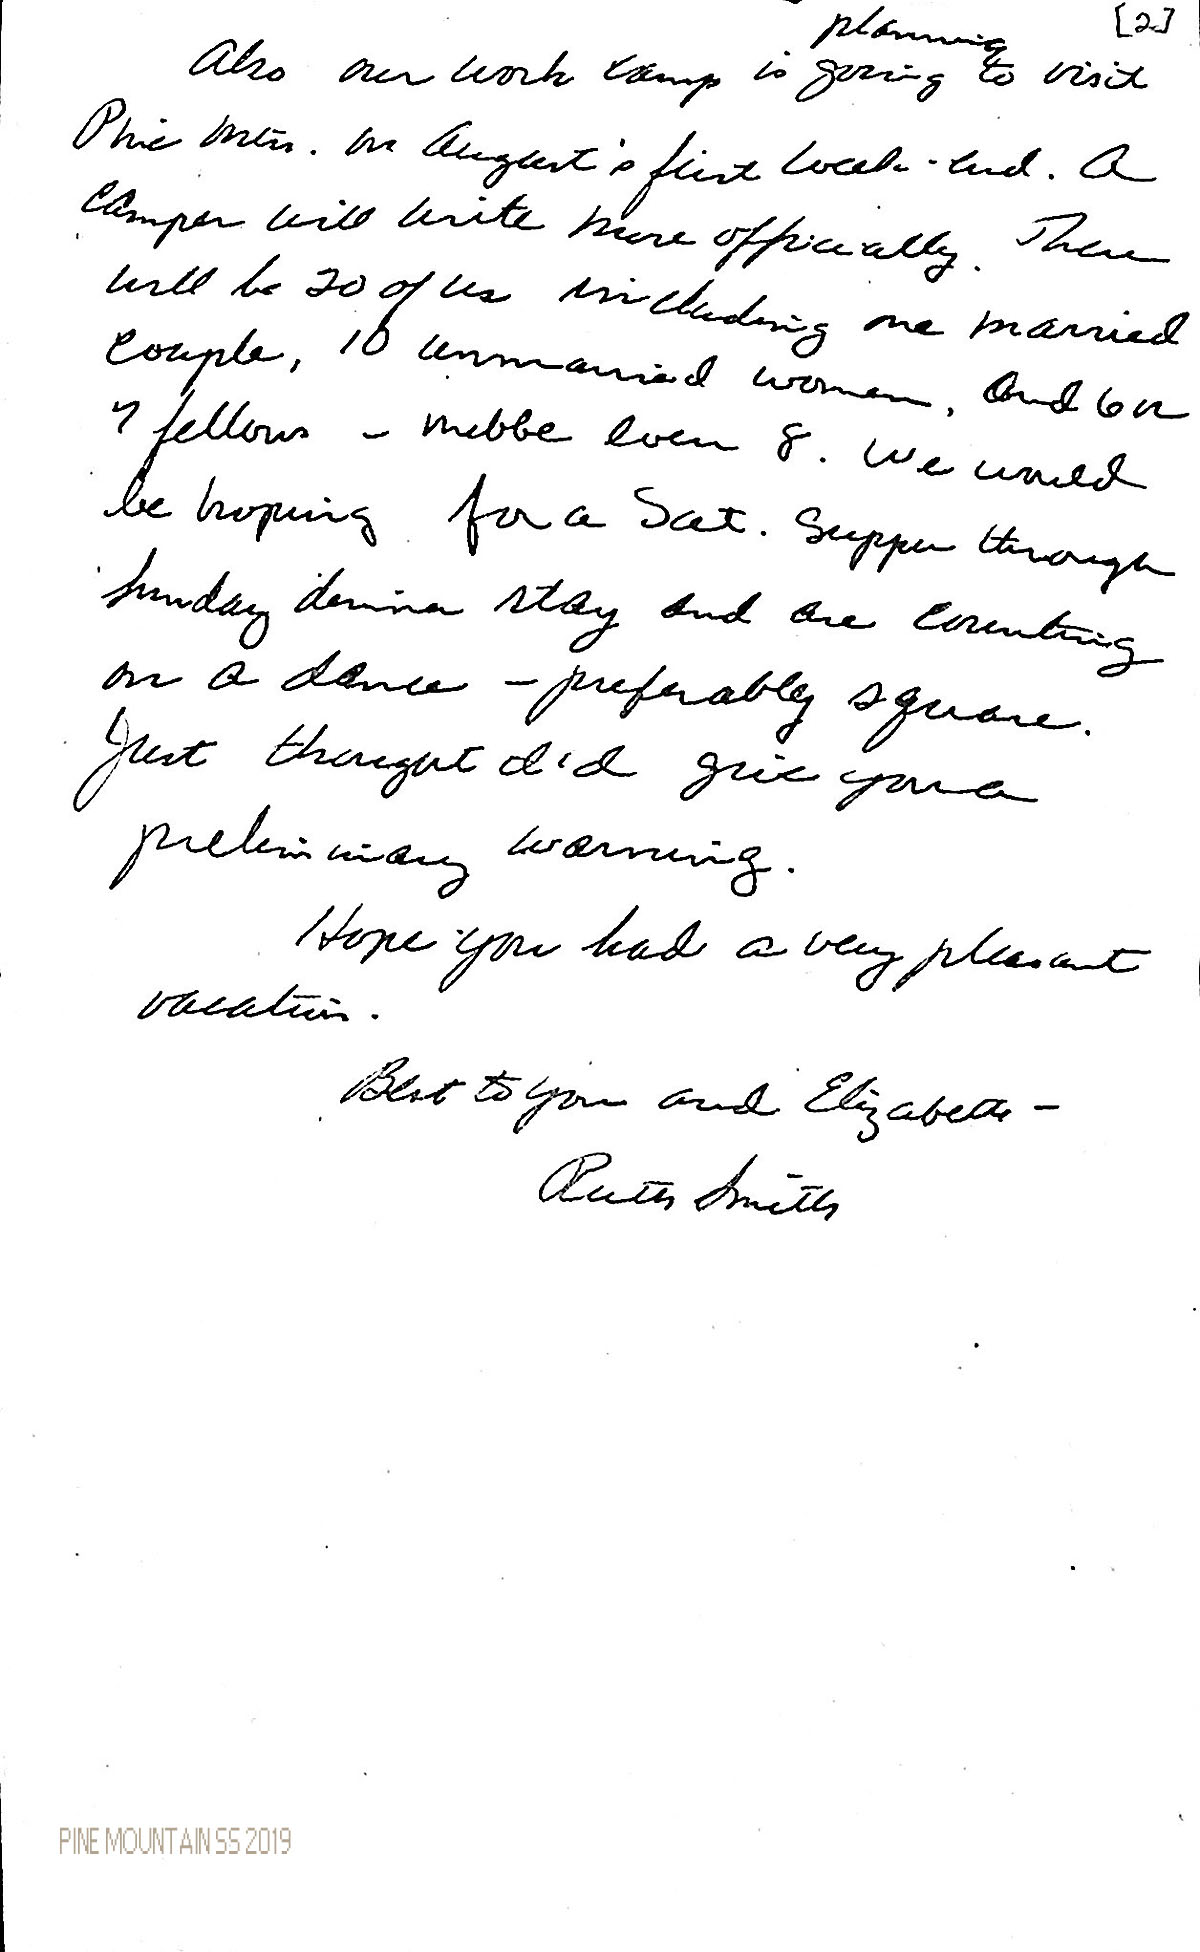 [2]
planning
Also our work camp is going to visit
Pine Mtn. on August's first week-end. A
camper will write more officially. There
will be 20 of us including one married
couple, 10 unmarried women, and 6 or
7 fellows - mebbe even 8. We would
be hoping for a Sat. supper through
Sunday dinner stay and are counting
on a dance - preferably square.
Just thought I'd give you a
preliminary warning.
Hope you had a very pleasant
vacation.
Best to you and Elizabeth -
Ruth Smith
PINE MOUNTAIN SS 2019